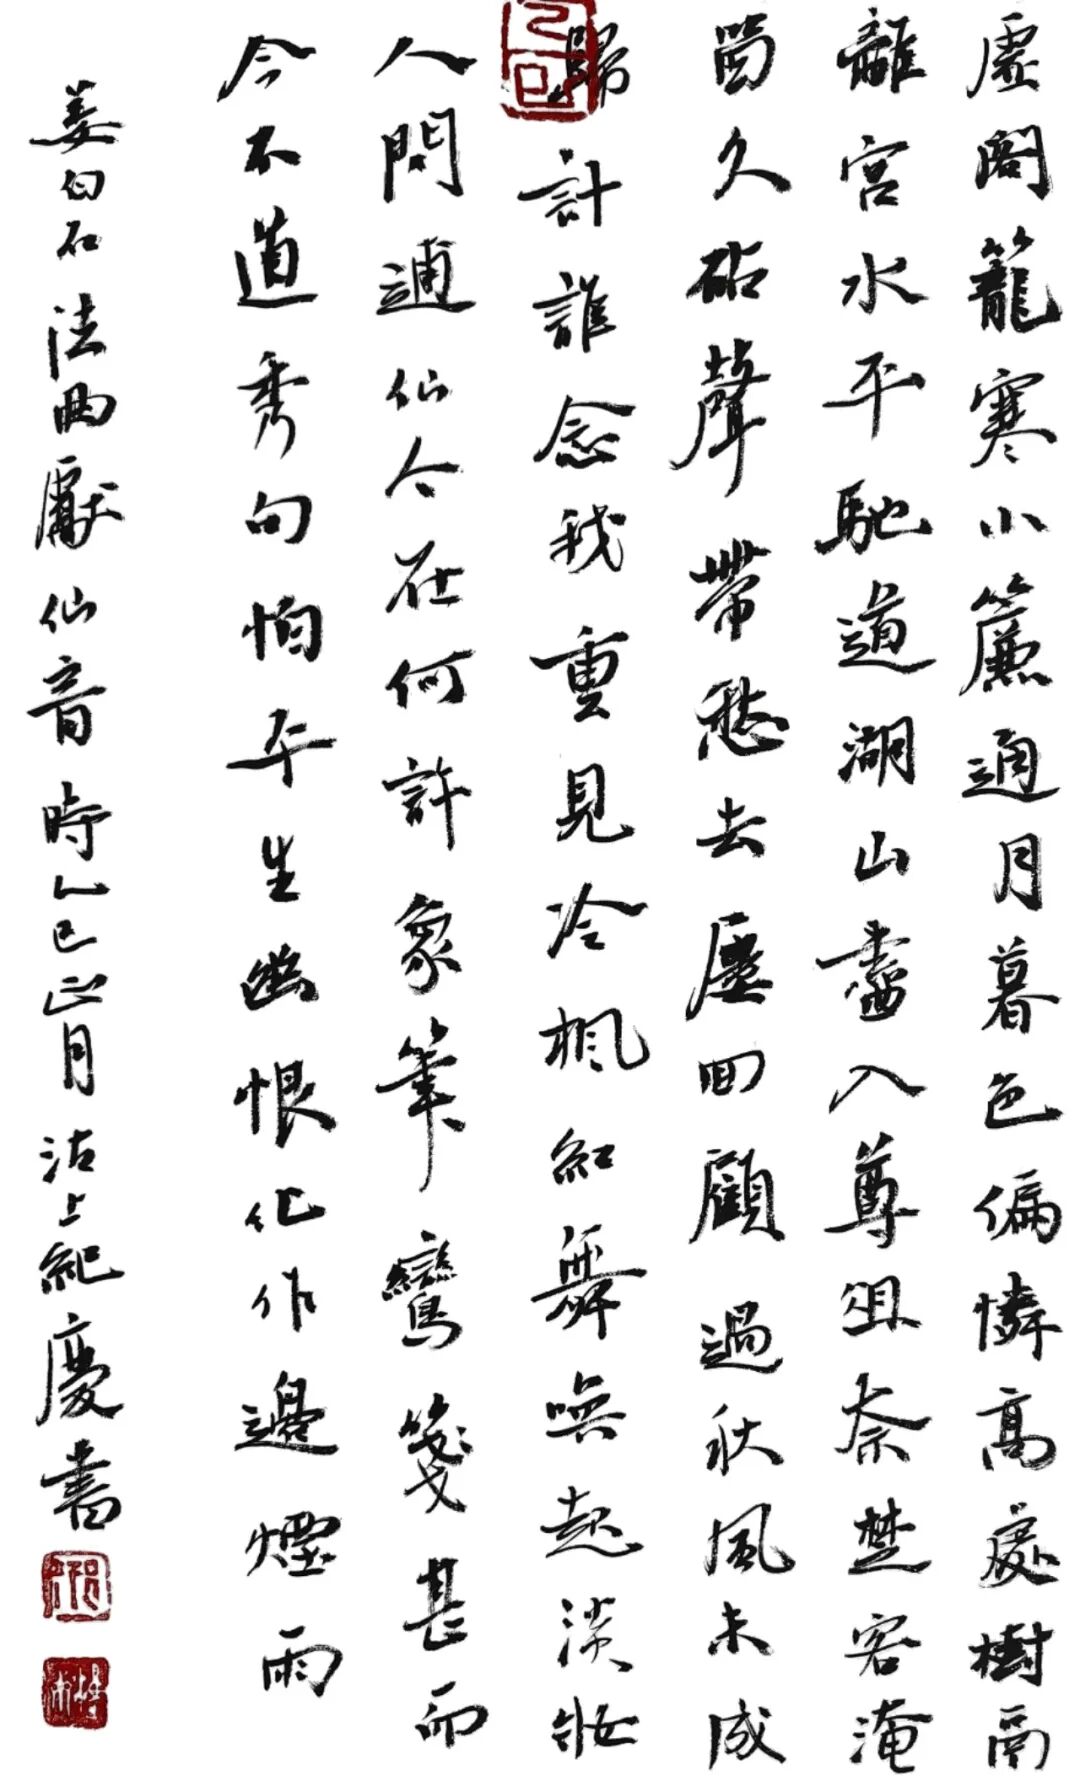 虛閣籠寒小簾通月暮色偏憐高處樹鬲
離宮水平馳道湖山盡入尊俎奈楚客淹
留久砧聲帶愁去屢回顧過秋風未成
歸計誰念我重見冷楓紅舞喚起淡妝
人問逋仙今在何許象筆鸞箋甚而
今不道秀句怕平生幽恨化作邊煙雨
姜白石法曲獻仙音時乙巳正月沽上紀慶書